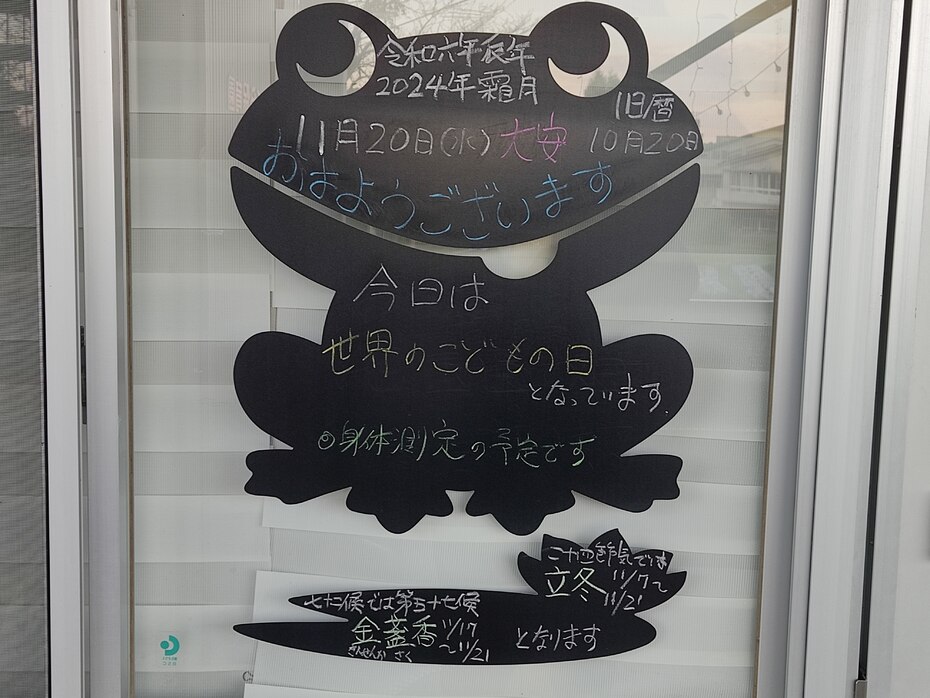 令和六年辰年
2024年霜月
旧暦
11月20日(水)大安 10月20日
おはようございます
今日は
世界のこどもの日
となっています。
◎身体測定の予定です
二十四節気では
立冬 11/7〜
11/21
七十二候では第五十七候
金盞香 11/17
〜11/21
きんせんか さく
となります